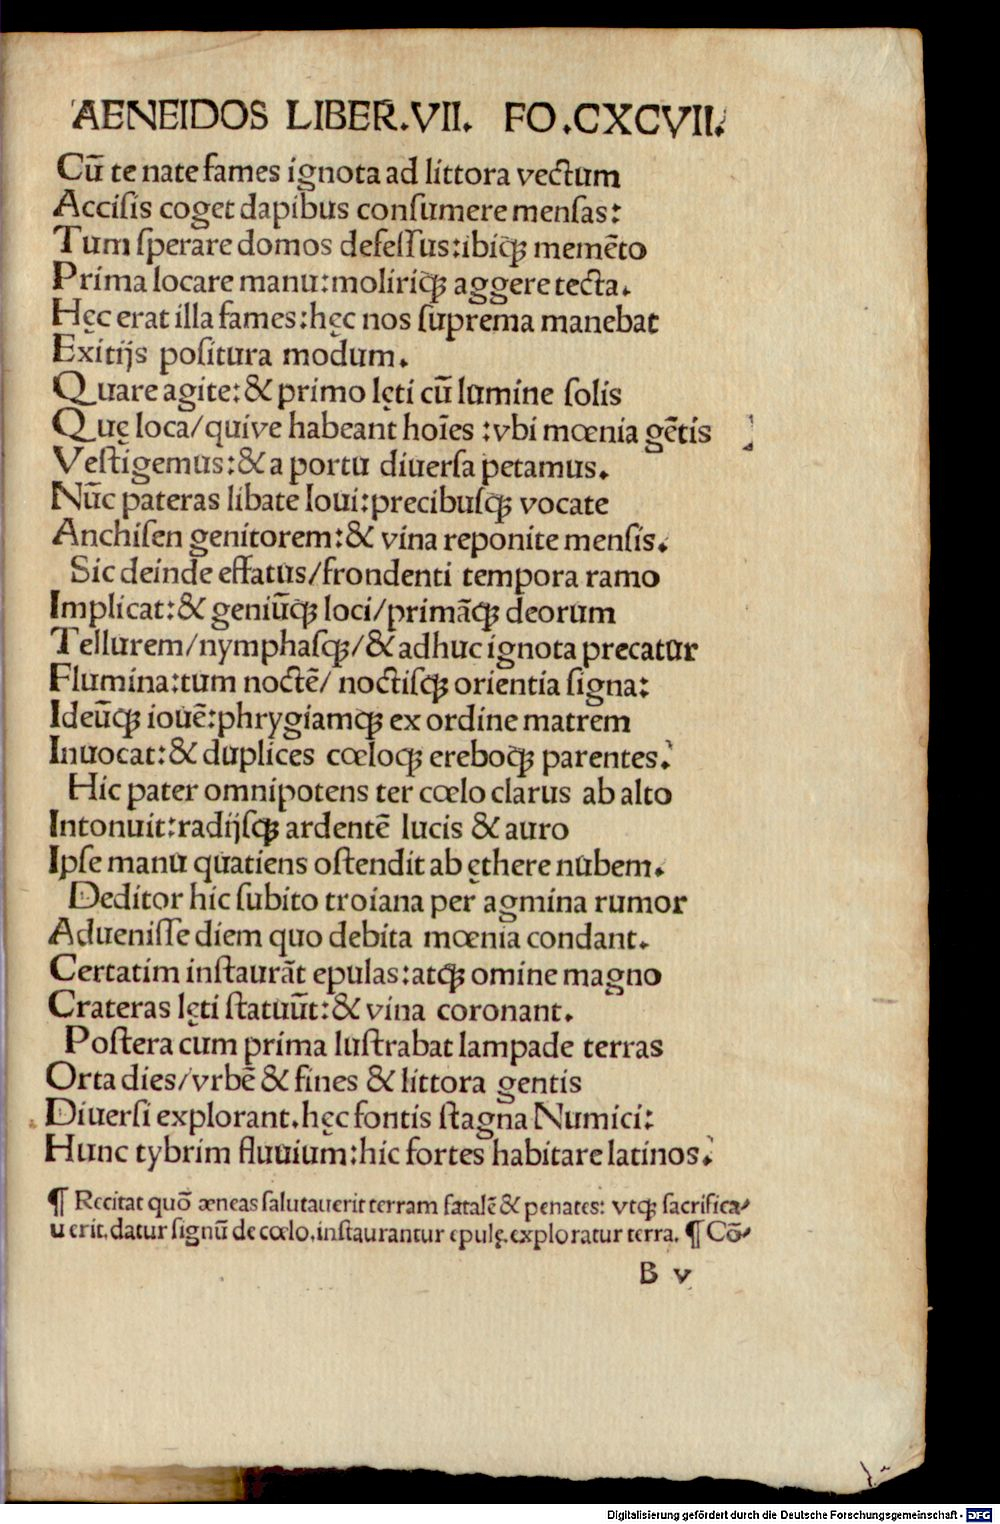 AENEIDOS LIBER.VII. FO.CXCVII.
Cū te nate fames ignota ad littora vectum
Accisis coget dapibus consumere mensas:
Tum sperare domos defessus:ibiqꝫ memēto
Prima locare manu:moliriqꝫ aggere tecta.
Hęc erat illa fames:hęc nos suprema manebat
Exitijs positura modum.
Quare agite:& primo lęti cū lumine solis
Quę loca/quive habeant hoīes :vbi mœnia gētis
Vestigemus:& a portu diuersa petamus.
Nūc pateras libate Ioui:precibusqꝫ vocate
Anchisen genitorem:& vina reponite mensis.
Sic deinde effatus/frondenti tempora ramo
Implicat:& geniūqꝫ loci/primāqꝫ deorum
Tellurem/nymphasqꝫ/& adhuc ignota precatur
Flumina:tum noctē/ noctisqꝫ orientia signa:
Ideūqꝫ iouē:phrygiamqꝫ ex ordine matrem
Inuocat:& duplices cœloqꝫ ereboqꝫ parentes.
Hic pater omnipotens ter cœlo clarus ab alto
Intonuit:radijsqꝫ ardentē lucis & auro
Ipse manu quatiens ostendit ab ęthere nubem.
Deditor hic subito troiana per agmina rumor
Aduenisse diem quo debita mœnia condant.
Certatim instaurāt epulas:atqꝫ omine magno
Crateras lęti statuūt:& vina coronant.
Postera cum prima lustrabat lampade terras
Orta dies/vrbē & fines & littora gentis
Diuersi explorant.hęc fontis stagna Numici:
Hunc tybrim fluuium:hic fortes habitare latinos.
¶ Recitat quō æneas salutauerit terram fatalē & penates: vtqꝫ sacrifica⸗
uerit.datur signū de cœlo.instaurantur epulę.exploratur terra. ¶ Cō⸗
B v
Digitalisierung gefördert durch die Deutsche Forschungsgemeinschaft - DFG